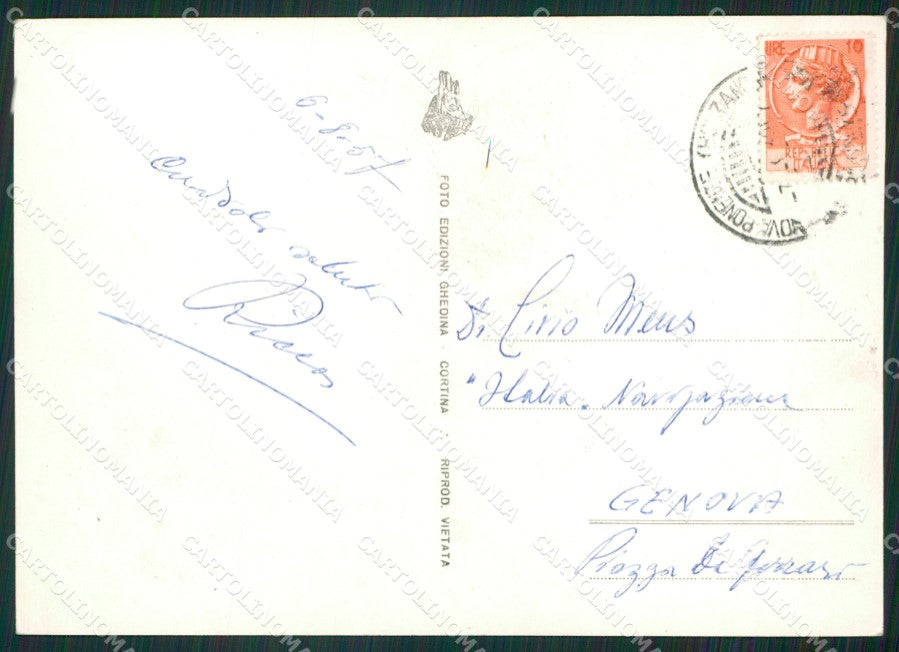 6-8-57
Cordiali saluti
FOTO EDIZIONI GHEDINA CORTINA RIPROD. VIETATA
LIRE 10
NOVA PONENTE
Livio Meus
"Italia" Navigazione
GENOVA
Piazza De Ferrari
CARTOLINOMANIA